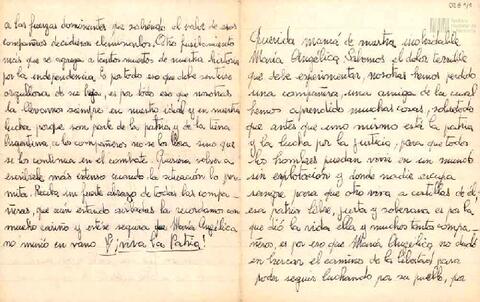 Querida mamá de nuestra inolvidable
María Angélica: Sabemos el dolor terrible
que debe experimentar, nosotras hemos perdido
una compañera, una amiga de la cual
hemos aprendido muchas cosas, sobretodo
que antes que uno mismo está la patria
y la lucha por la justicia, para que todos
los hombres puedan vivir en un mundo
sin explotación y donde nadie escupa
sangre para que otro viva a costillas de él,
esa patria libre, justa y soberana es por la
que dió la vida ella y muchos tantos compa-
ñeros, es por eso que María Angélica no dudó
en buscar el camino de la libertad, para
poder seguir luchando por su pueblo, por
a las fuerzas dominantes que sabiendo el valor de esos
compañeros decidieron eliminarlos. Otro fusilamiento
más que se agrega a tantos muertos de nuestra historia
por la independencia, es por todo eso que debe sentirse
orgullosa de su hija, es por todo eso que nosotras
la llevamos siempre en nuestro ideal y en nuestra
lucha porque son parte de la patria y de la tierra
Argentina, a los compañeros no se los llora sino que
se los continua en el combate. Quisiera volver a
escribirle más extenso cuando la situación lo per-
mita. Reciba un fuerte abrazo de todas las compa-
ñeras, que aún estando aisladas la recordamos con
mucho cariño y esté segura que María Angélica
no murió en vano ¡Viva la Patria!